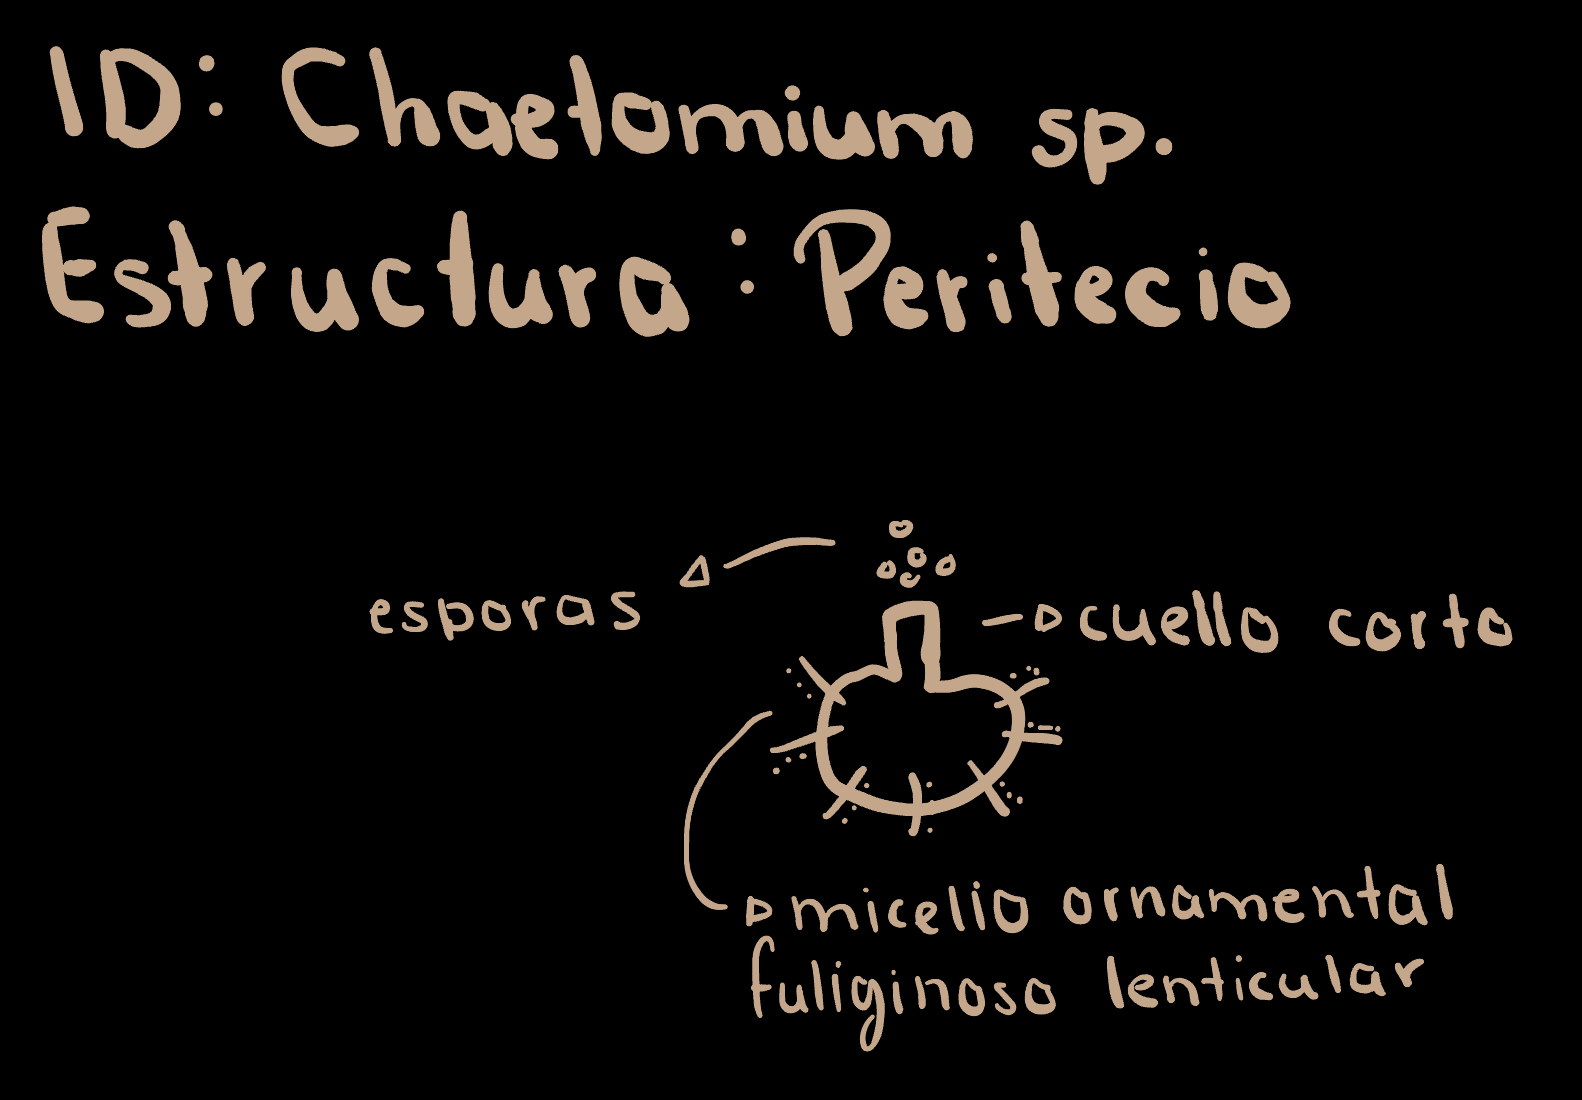 ID: Chaetomium sp.
Estructura: Peritecio
esporas
cuello corto
micelio ornamental
fuliginoso lenticular